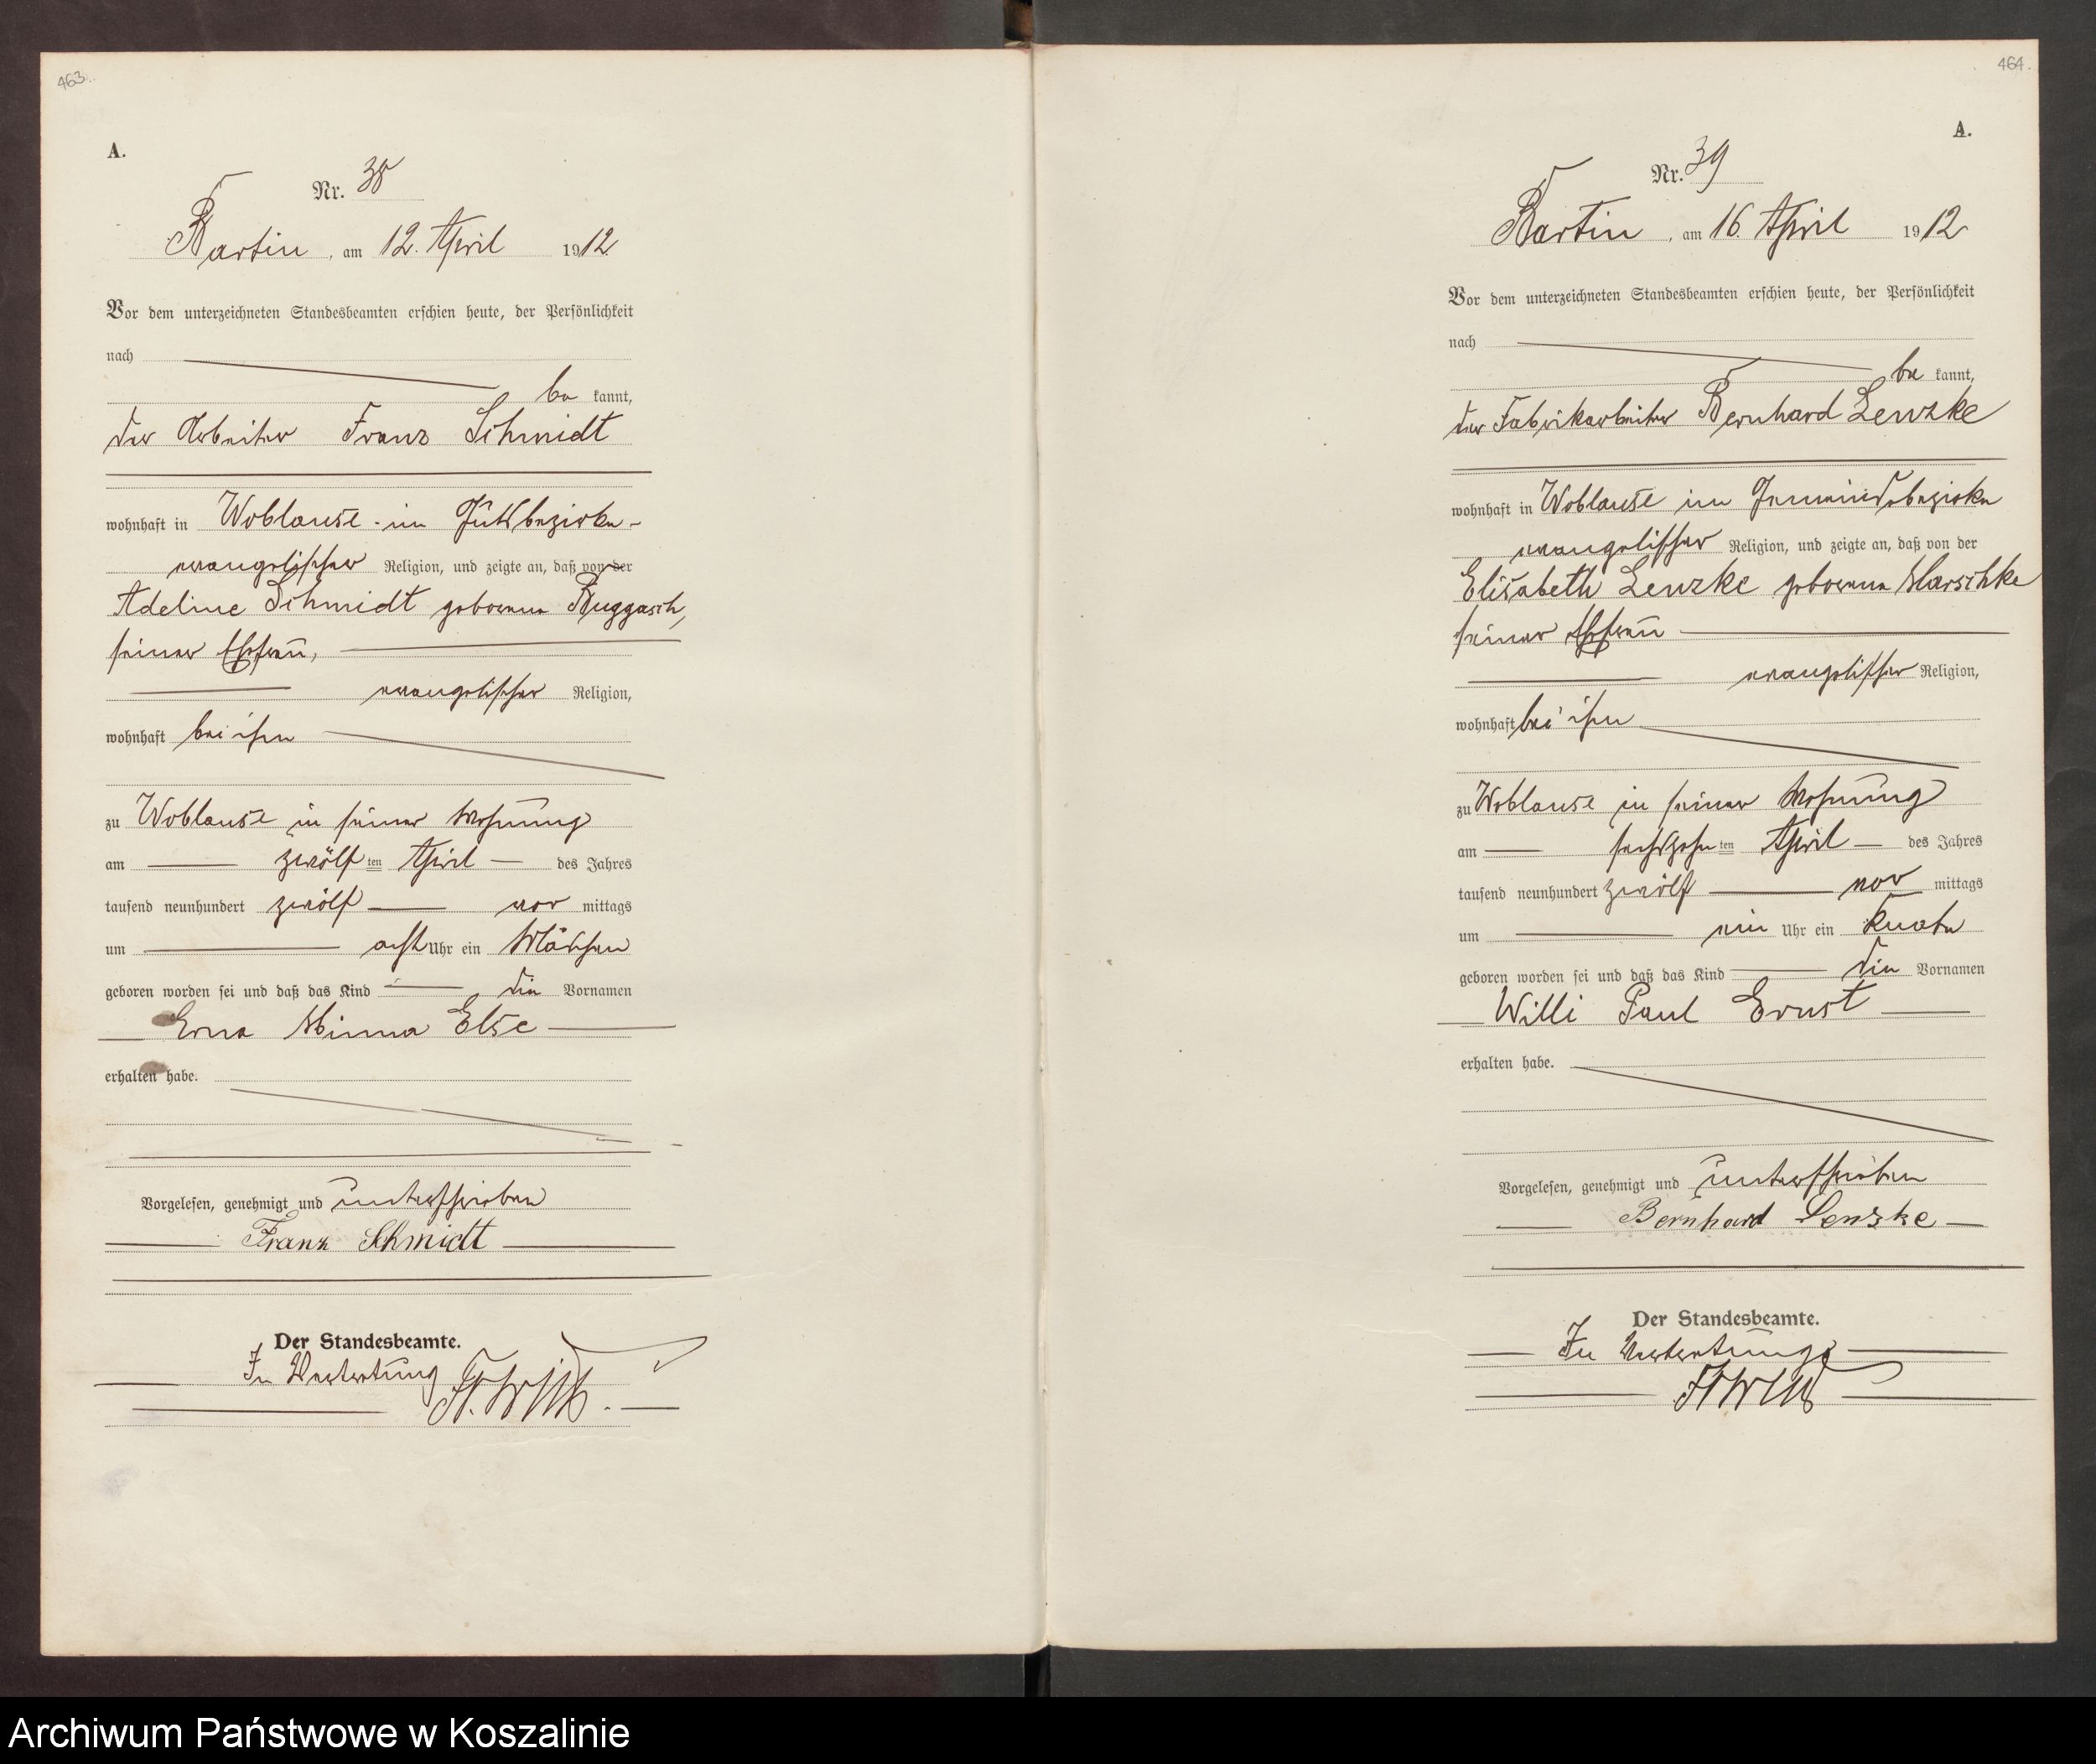 463.
A.
Nr. 38
Bartin, am 12. April 1912
Vor dem unterzeichneten Standesbeamten erschien heute, der Persönlichkeit
nach
be kannt,
der Arbeiter Franz Schmidt
wohnhaft in Woblanse im Gutsbezirke
evangelischer Religion, und zeigte an, daß von der
Adeline Schmidt geborene Ruggasch,
seiner Ehefrau,
evangelischer Religion,
wohnhaft bei ihm
zu Woblanse in seiner Wohnung
am zwölf ten April des Jahres
tausend neunhundert zwölf vor mittags
um acht Uhr ein Mädchen
geboren worden sei und daß das Kind die Vornamen
Erna Minna Else
erhalten habe.
Vorgelesen, genehmigt und unterschrieben
Franz Schmidt
Der Standesbeamte.
In Vertretung
464.
A.
Nr. 39
Bartin, am 16. April 1912
Vor dem unterzeichneten Standesbeamten erschien heute, der Persönlichkeit
nach
be kannt,
der Fabrikarbeiter Bernhard Lenzke
wohnhaft in Woblanse im Gemeindebezirke
evangelischer Religion, und zeigte an, daß von der
Elisabeth Lenzke geborene Marschke
seiner Ehefrau
evangelischer Religion,
wohnhaft bei ihm
zu Woblanse in seiner Wohnung
am sechszehn ten April des Jahres
tausend neunhundert zwölf vor mittags
um ein Uhr ein Knabe
geboren worden sei und daß das Kind die Vornamen
Willi Paul Ernst
erhalten habe.
Vorgelesen, genehmigt und unterschrieben
Bernhard Lenzke
Der Standesbeamte.
In Vertretung
Archiwum Państwowe w Koszalinie